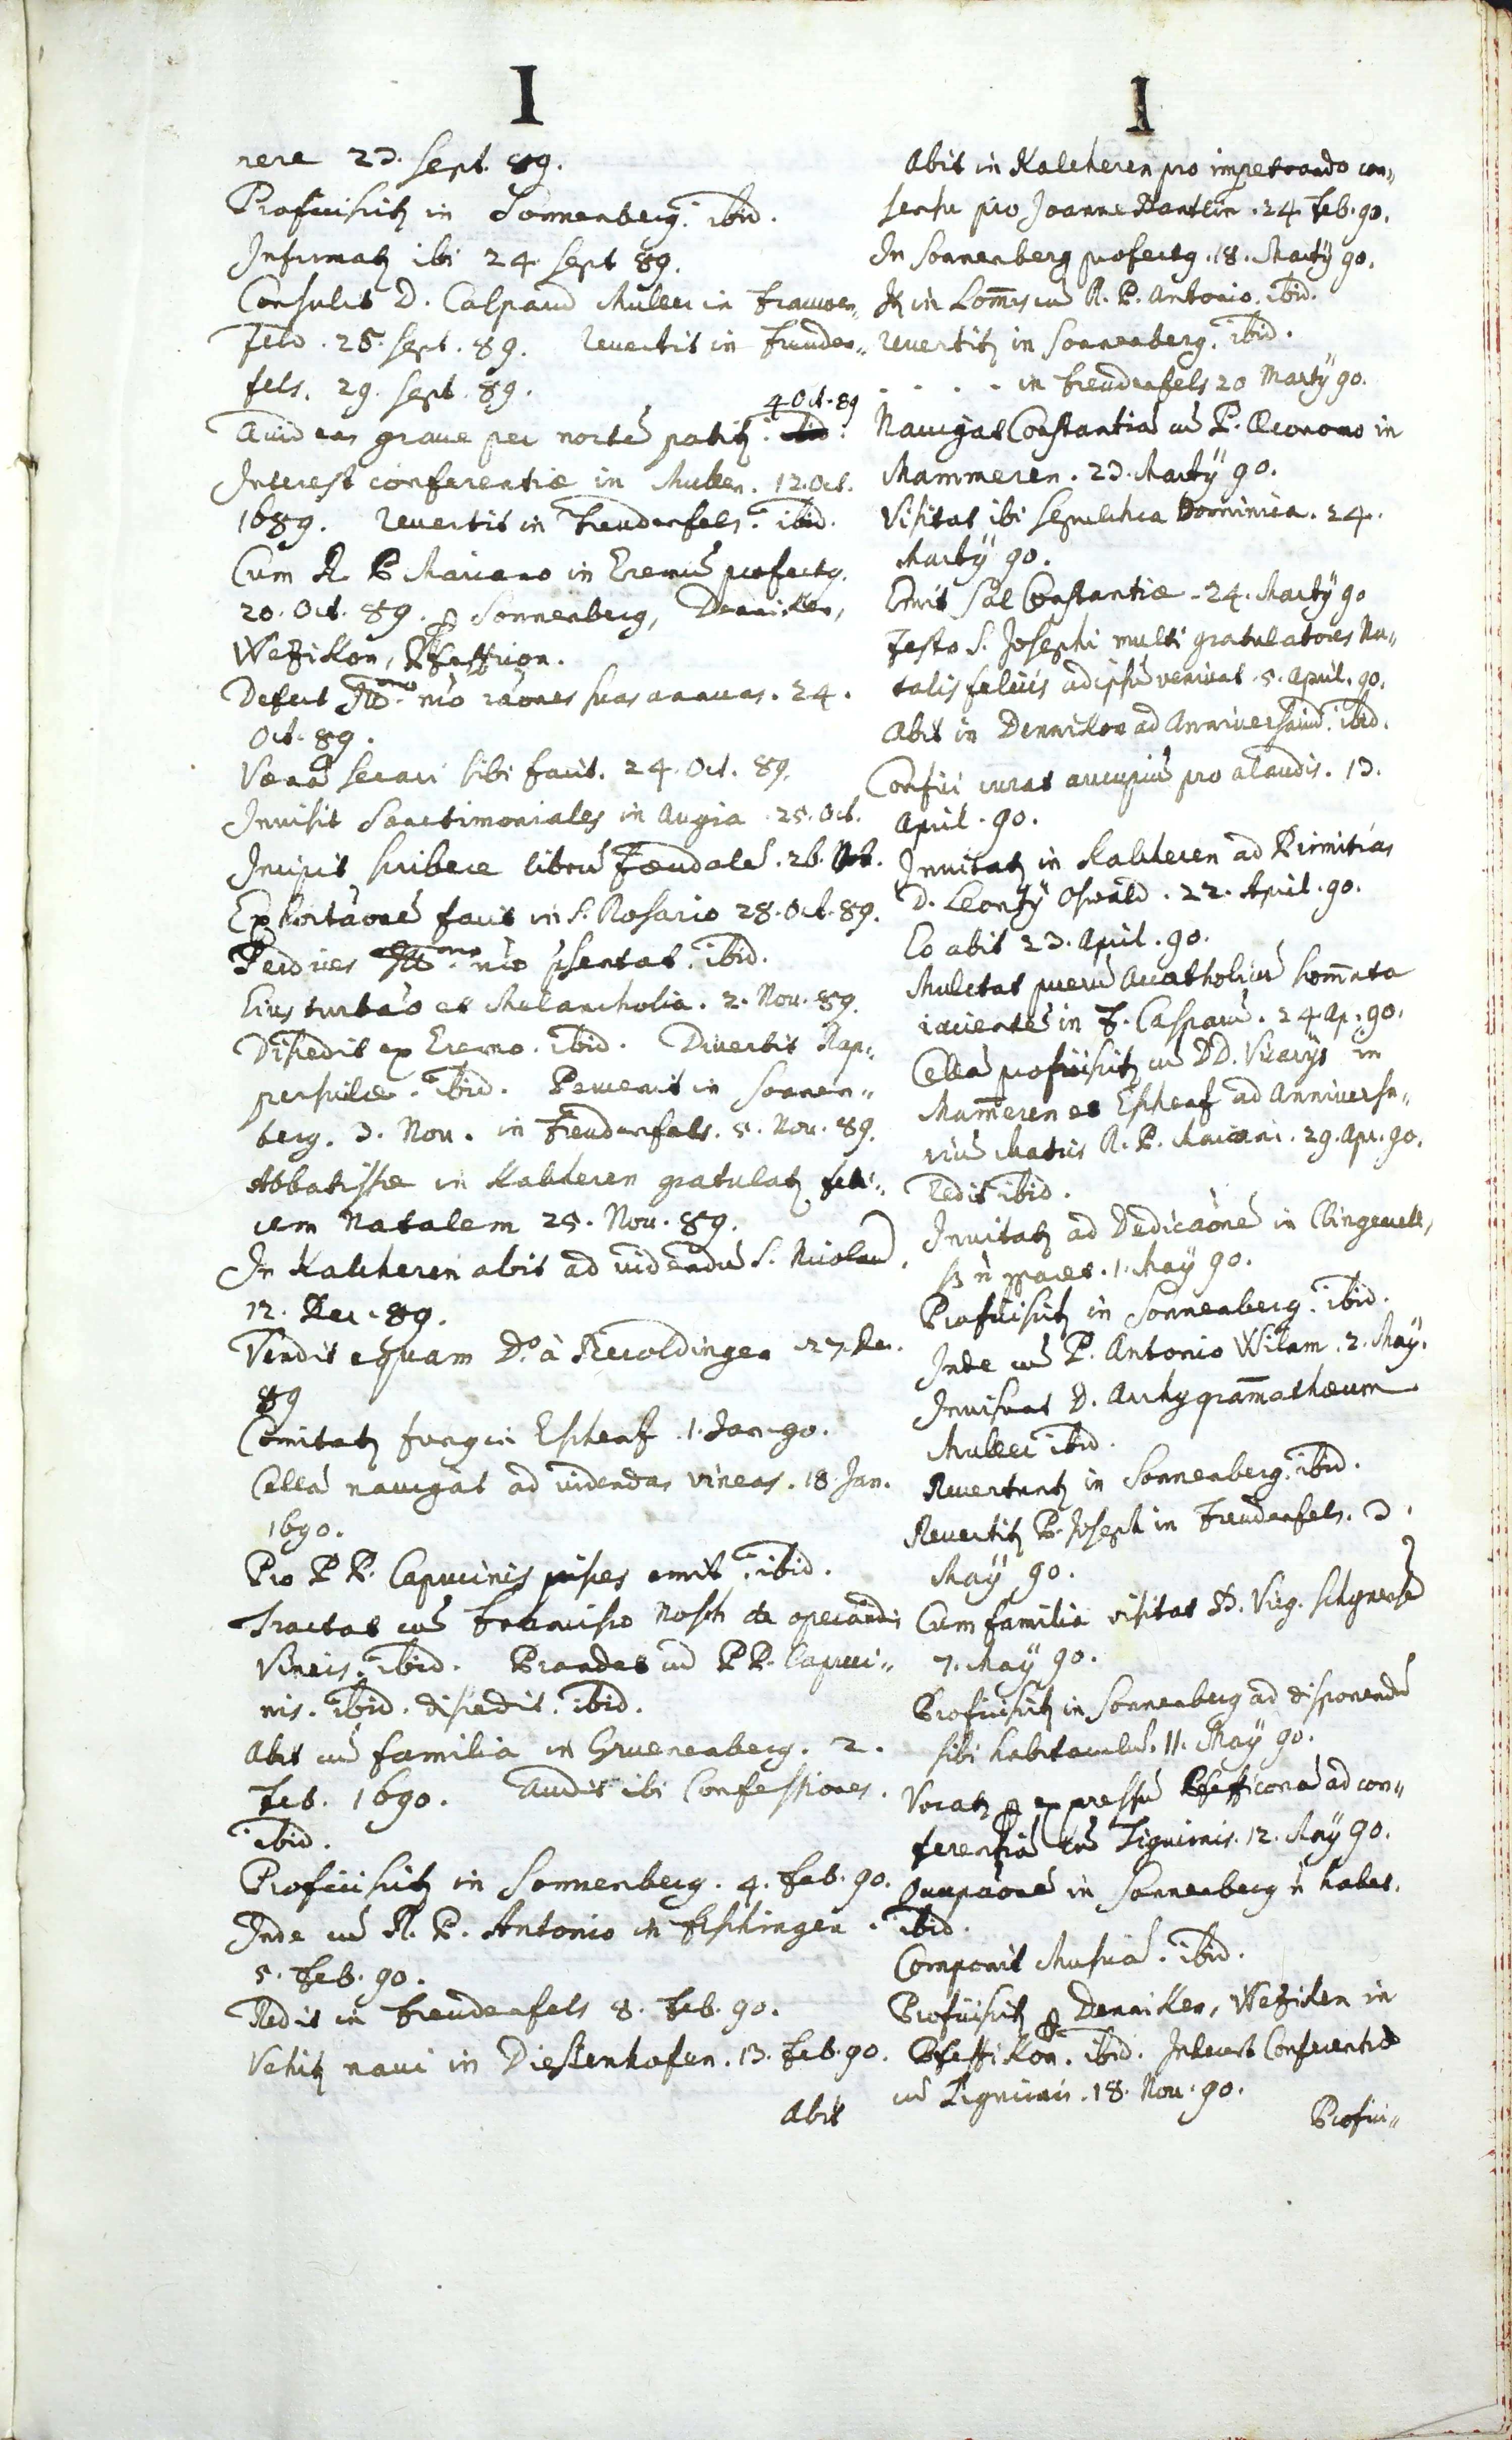 I
rere 23. Sept. 89.
Proficiscitʒ in Sonnenberg. ibid.
Infirmatʒ ibi 24. Sept 89.
Consulit D. Casparū Muller in Frauwen„
feld. 25. Sept. 89. Revertit in Freuden„
fels. 29. Sept. 89.
4 Oct. 89
grave per noctē patitʒ.
Interest conferentiæ in Mullen. 12. Oct.
1689. Revertit in Freudenfels. ibid.
Cum R. P. Mariano in Eremū profectꝯ
20. Oct. 89. ꝑ Sonnenberg, Denniken,
Wezikon, Pfeffikon.
Defert Rdmo nro raōnes suas annuas. 24.
Oct. 89.
Venā secari sibi facit. 24. Oct. 89.
Invisit Sanctimoniales in Augia. 25. Oct.
Incipit scribere librū Fæudalē. 26. Oct.
Exhortaōnē facit in S. Rosario 28. Oct. 89.
Perdices Rdmo nro pʳsentat. ibid.
Eius turbāo et Melancholia. 2. Nov. 89.
Discedit ex Eremo. ibid. Divertit Rap„
persvilæ. ibid. Pervenit in Sonnen„
berg. 3. Nov. in Freudenfels. 5. Nov. 89.
Abbatissæ in Kalcheren gratulatʒ feli„
cem Natalem 25. Nov. 89.
In Kalcheren abit ad videndū S. Nicolaū.
12. Dec. 89.
Vendit equam D.o à Reoldingen 27. Dec.
89
Comitatʒ in Eschenz. 1. Jan. 90.
Cellā navigat ad videndas vineas. 18. Jan.
1690.
Pro P P. Capucinis pisces emit. ibid.
Tractat cū Francisco Nosch de operandis
Vineis. ibid. Prandet cū P P. Capuci„
nis. ibid. discedit. ibid.
Abit cū familia in Gruenenberg. 2.
Feb. 1690. Audit ibi Confessiones.
ibid.
Proficiscitʒ in Sonnenberg. 4. Feb. 90.
Inde cū R. P. Antonio in Eschingen.
5. Feb. 90.
Redit in Freudenfels 8. Feb. 90.
Vehitʒ navi in Diessenhofen. 13. Feb. 90.
Abit
I
Abit in Kalcheren pro impetrando con„
sensu pro Joanne Däntlin. 24. Feb. 90.
In Sonnenberg profectꝯ. 18. Martÿ 90.
It in Lom̄is cū R. P. Antonio. ibid.
revertitʒ in Sonnenberg. ibid.
. . . . in Freudenfels 20 Martÿ 90.
Navigat Constantiā cū P. Œconomo in
Mammeren. 23. Martÿ 90.
Visitat ibi sepulchra Dominica. 24.
Martÿ 90.
Emit sal Constantiæ. 24. Martÿ 90
Festo S. Josephi multi gratulatores Na„
talis felicis ad ipsū veniunt. 5. April. 90.
Abit in Dennikon ad Anniversariū. ibid.
Confici curat aucupiū pro alaudis. 13.
April. 90.
Invitatʒ in Kalcheren ad Primitias
D. Leontÿ Oswald. 22. April. 90.
Eo abit 23. April. 90.
Mulctat puerū Acatholicū
iacientē in F. Casparū. 24. Ap. 90.
Cellā proficiscitʒ cū DD. Vicarÿs in
Mam̄eren et Eschenz ad Anniversa„
riū Matris R. P. Mariani. 29. Apr. 90.
Redit ibid.
Invitatʒ ad Dedicaōnē in Clingenzell,
sʒ n̄ paret. 1. May 90.
Proficiscitʒ in Sonnenberg. ibid.
Inde cū P. Antonio Wilam. 2. May.
Invisunt D. Archygram̄athæum
Muller ibid.
Revertuntʒ in Sonnenberg. ibid.
Revertitʒ P. Joseph in Freudenfels. 3.
May 90.
Cum familia visitat B. Virg. Schynensē
7. May 90.
Proficiscitʒ in Sonnenberg ad disponendū
sibi habitaculū. 11. May 90.
Vocatʒ ꝑ expressū Pfefficonā ad con„
ferentiā cū Tigurinis. 12. May 90.
Occupaōnē in Sonnenberg n̄ habet.
ibid.
Componit Musicā. ibid.
Proficiscitʒ ꝑ Denniken, Weziken in
Pfeffikon. ibid. Interest Conferentiæ
cū Tigurinis. 18. Nov. 90.
Profici„